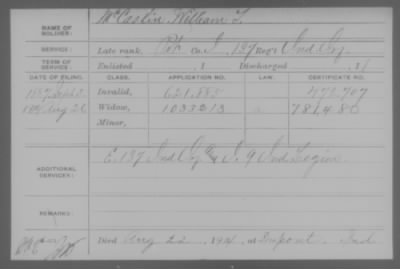 NAME OF SOLDIER: McCaslin, William T.
SERVICE: Late rank, Pvt, Co. I, 137 Reg't Ind Inf
TERM OF SERVICE: Enlisted , 1 Discharged , 1
DATE OF FILING. CLASS. APPLICATION NO. LAW. CERTIFICATE NO.
1887 Invalid, 621,885 472,707
1914 Aug 26 Widow, 1033213 781480
Minor,
ADDITIONAL SERVICES: E. 137 Ind Inf & I. 9 Ind Legion
REMARKS:
Died Aug 22, 1914, at Ind